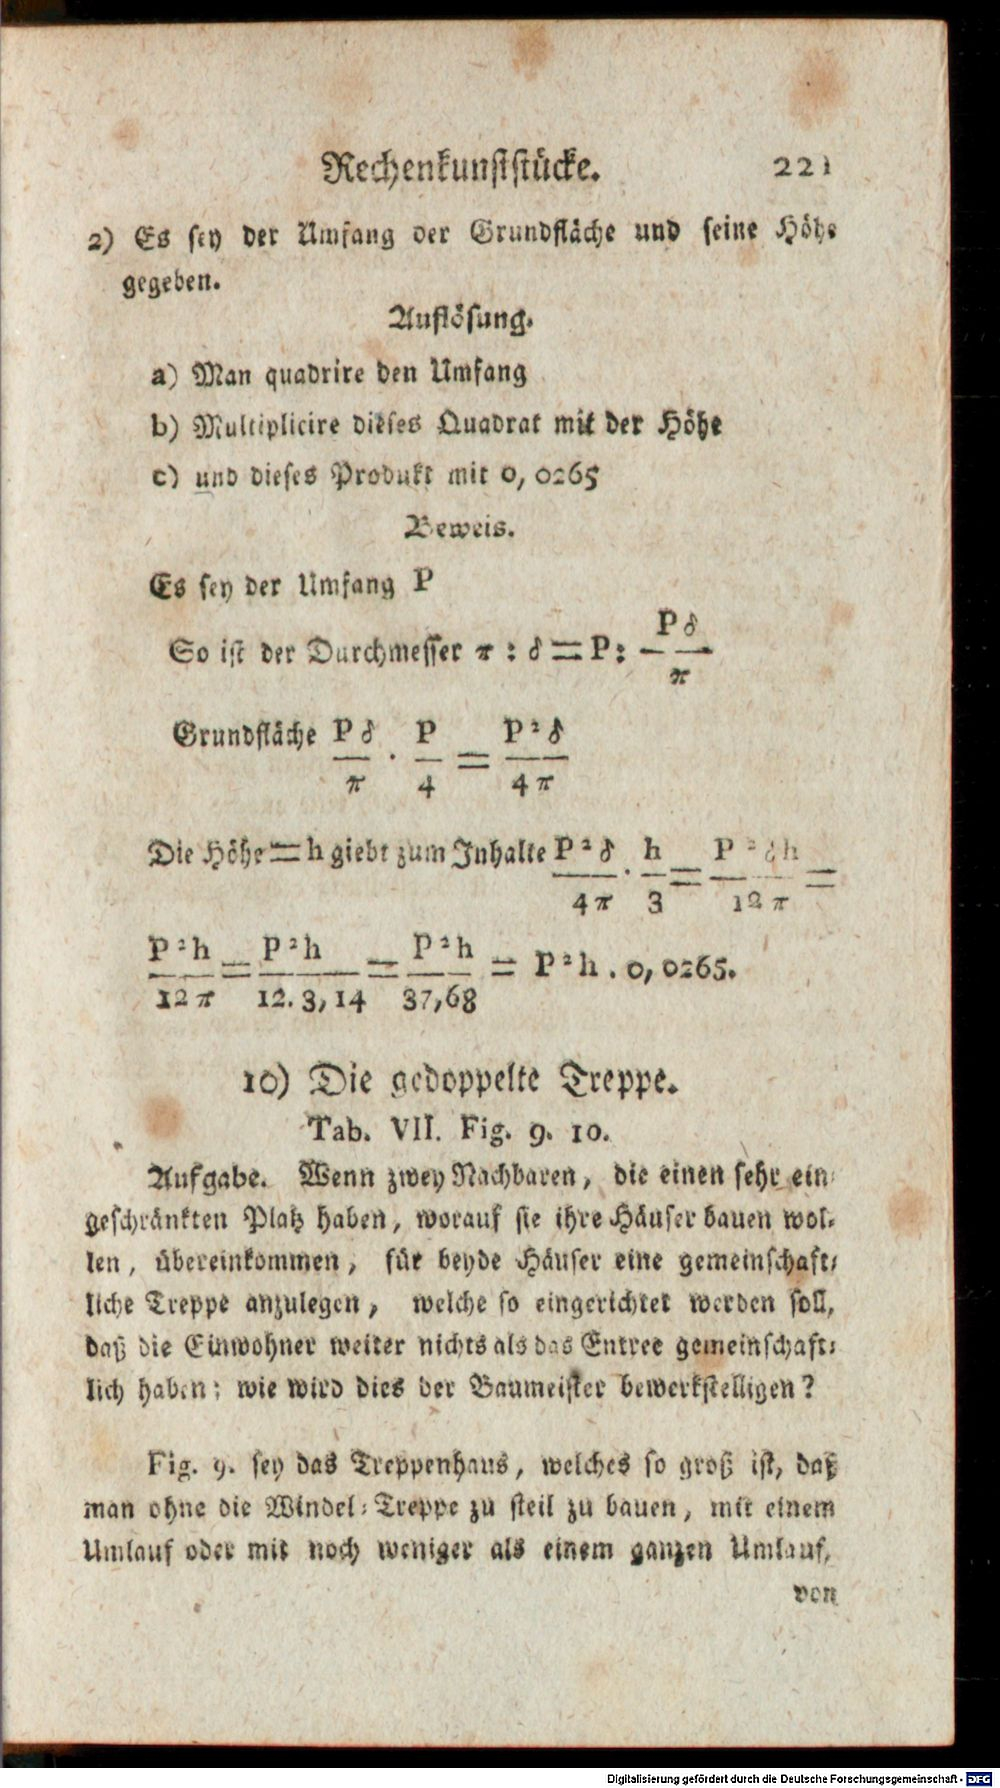 Rechenkunststücke. 221
2) Es sey der Umfang der Grundfläche und seine Höhe
gegeben.
Auflösung.
a) Man quadrire den Umfang
b) Multiplicire dieses Quadrat mit der Höhe
c) und dieses Produkt mit 0, 0265
Beweis.
Es sey der Umfang P
So ist der Durchmesser π : δ = P : Pδ/π
Grundfläche Pδ/π · P/4 = P²δ/4π
Die Höhe = h giebt zum Inhalte P²δ/4π · h/3 = P²δh/12π =
P²h/12π = P²h/12. 3,14 = P²h/37,68 = P²h . 0, 0265.
10) Die gedoppelte Treppe.
Tab. VII. Fig. 9. 10.
Aufgabe. Wenn zwey Nachbaren, die einen sehr ein-
geschränkten Platz haben, worauf sie ihre Häuser bauen wol-
len, übereinkommen, für beyde Häuser eine gemeinschaft-
liche Treppe anzulegen, welche so eingerichtet werden soll,
daß die Einwohner weiter nichts als das Entree gemeinschaft-
lich haben; wie wird dies der Baumeister bewerkstelligen?
Fig. 9. sey das Treppenhaus, welches so groß ist, daß
man ohne die Windel-Treppe zu steil zu bauen, mit einem
Umlauf oder mit noch weniger als einem ganzen Umlauf,
von
Digitalisierung gefördert durch die Deutsche Forschungsgemeinschaft - DFG